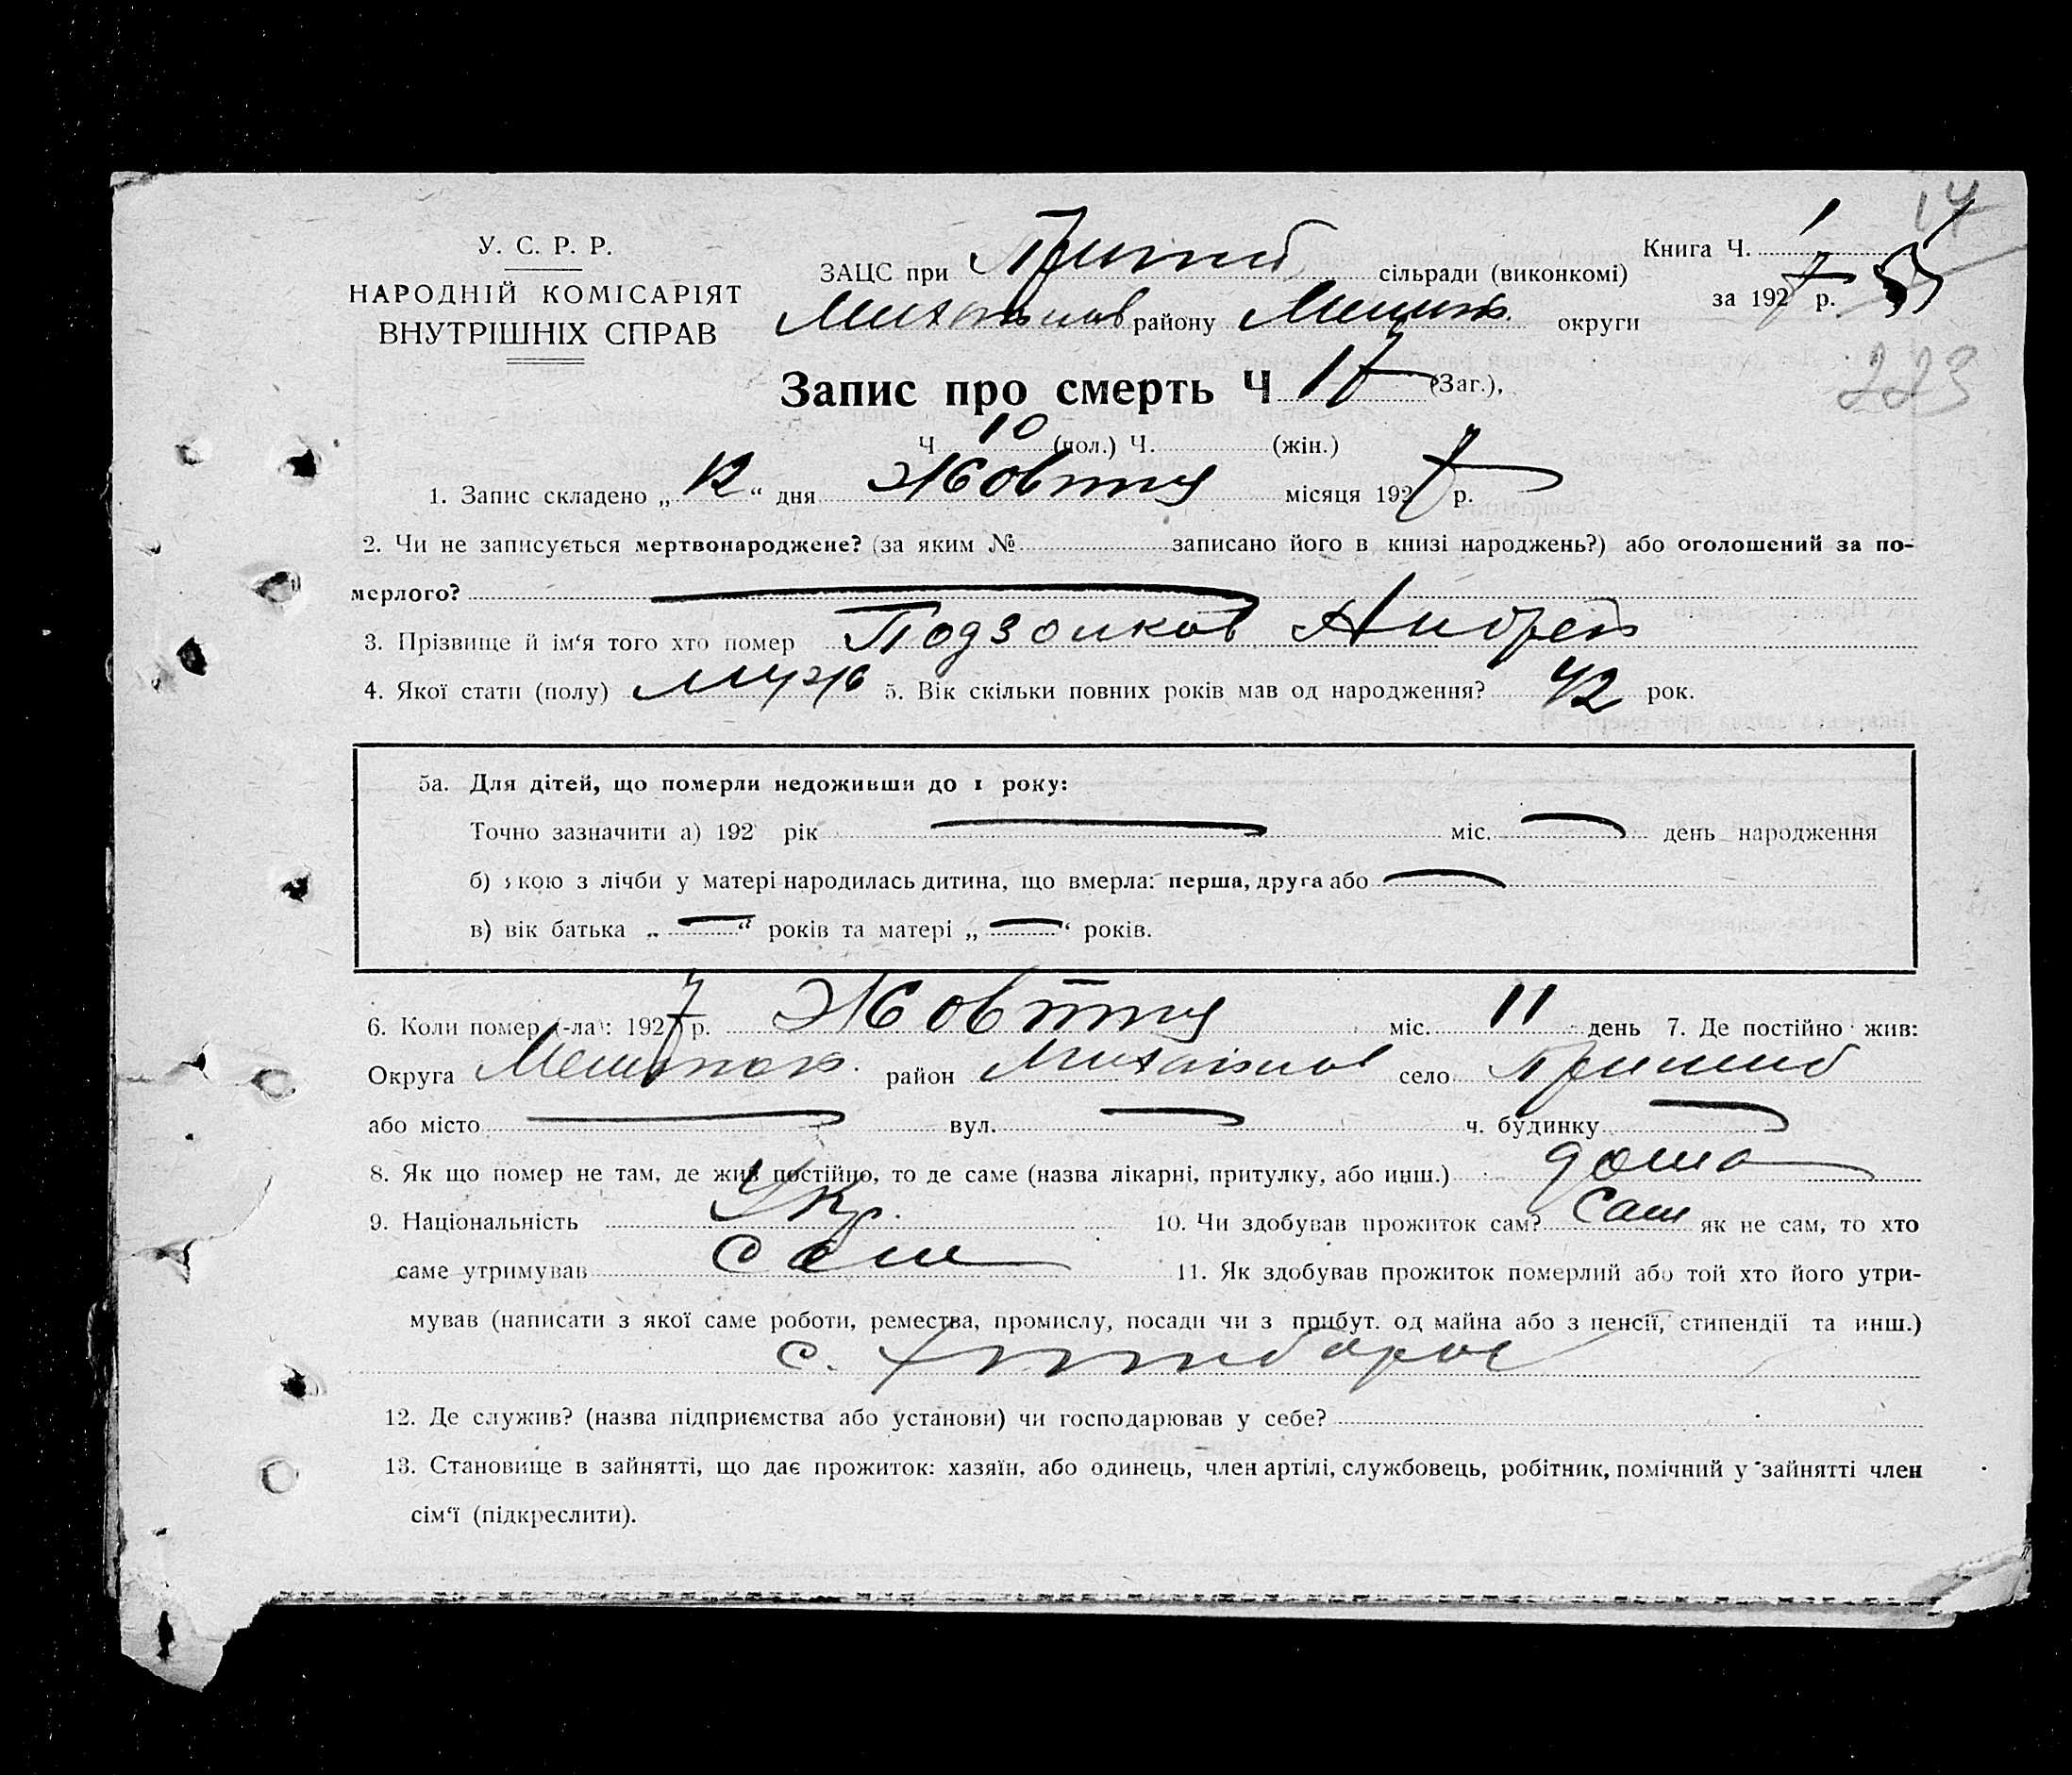 14
У. С. Р. Р.
НАРОДНІЙ КОМІСАРІЯТ
ВНУТРІШНІХ СПРАВ
ЗАЦС при Пришиб сільради (виконкомі)
Михайлов району Мелит. округи
Книга Ч. 1
за 1927 р.
223
Запис про смерть Ч 17 (Заг.),
Ч 10 (чол.) Ч. (жін.)
1. Запис складено „12“ дня Жовтня місяця 1927 р.
2. Чи не записується мертвонароджене? (за яким № записано його в книзі народжень?) або оголошений за по-
мерлого?
3. Прізвище й ім‘я того хто помер Андрей
4. Якої стати (полу) муж 5. Вік скільки повних років мав од народження? 42 рок.
5а. Для дітей, що померли недоживши до 1 року:
Точно зазначити а) 192 рік міс. день народження
б) якою з лічби у матері народилась дитина, що вмерла: перша, друга або
в) вік батька „ “ років та матері „ “ років.
6. Коли помер (-ла): 1927 р. Жовтня міс. 11 день 7. Де постійно жив:
Округа Мелитоп. район Михайлов село Пришиб
або місто вул. ч. будинку
8. Як що помер не там, де жив постійно, то де саме (назва лікарні, притулку, або инш.) дома
9. Національність Укр. 10. Чи здобував прожиток сам? Сам як не сам, то хто
саме утримував сам 11. Як здобував прожиток померлий або той хто його утри-
мував (написати з якої саме роботи, ремества, промислу, посади чи з прибут. од майна або з пенсії, стипендії та инш.)
с. хлибороб
12. Де служив? (назва підприємства або установи) чи господарював у себе?
13. Становище в зайнятті, що дає прожиток: хазяїн, або одинець, член артілі, службовець, робітник, помічний у зайнятті член
сім‘ї (підкреслити).